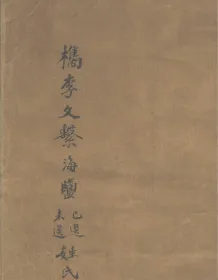 檇李文繫海鹽
已選
未選
姓氏